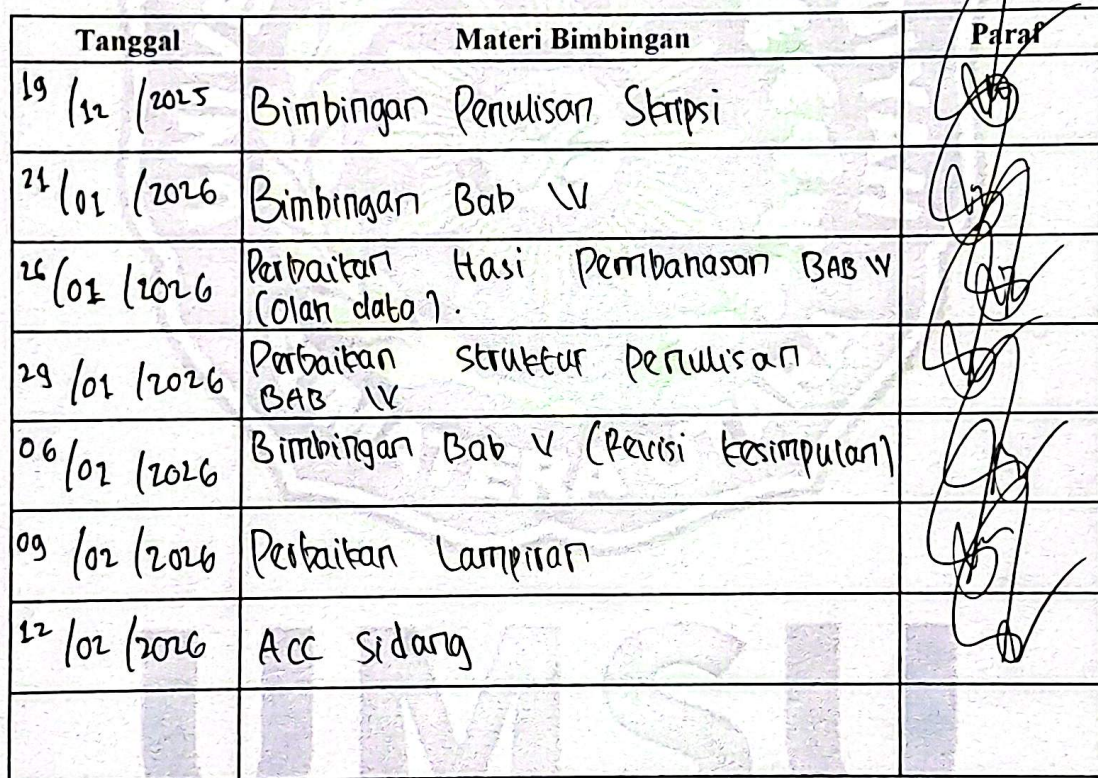 Tanggal Materi Bimbingan Paraf
19/12/2025 Bimbingan Penulisan Skripsi
21/01/2026 Bimbingan Bab IV
26/01/2026 Perbaikan Hasi Pembahasan BAB IV
(Olah data).
29/01/2026 Perbaikan struktur penulisan
BAB IV
06/02/2026 Bimbingan Bab V (Revisi kesimpulan)
09/02/2026 Perbaikan Lampiran
12/02/2026 Acc Sidang
UMSU